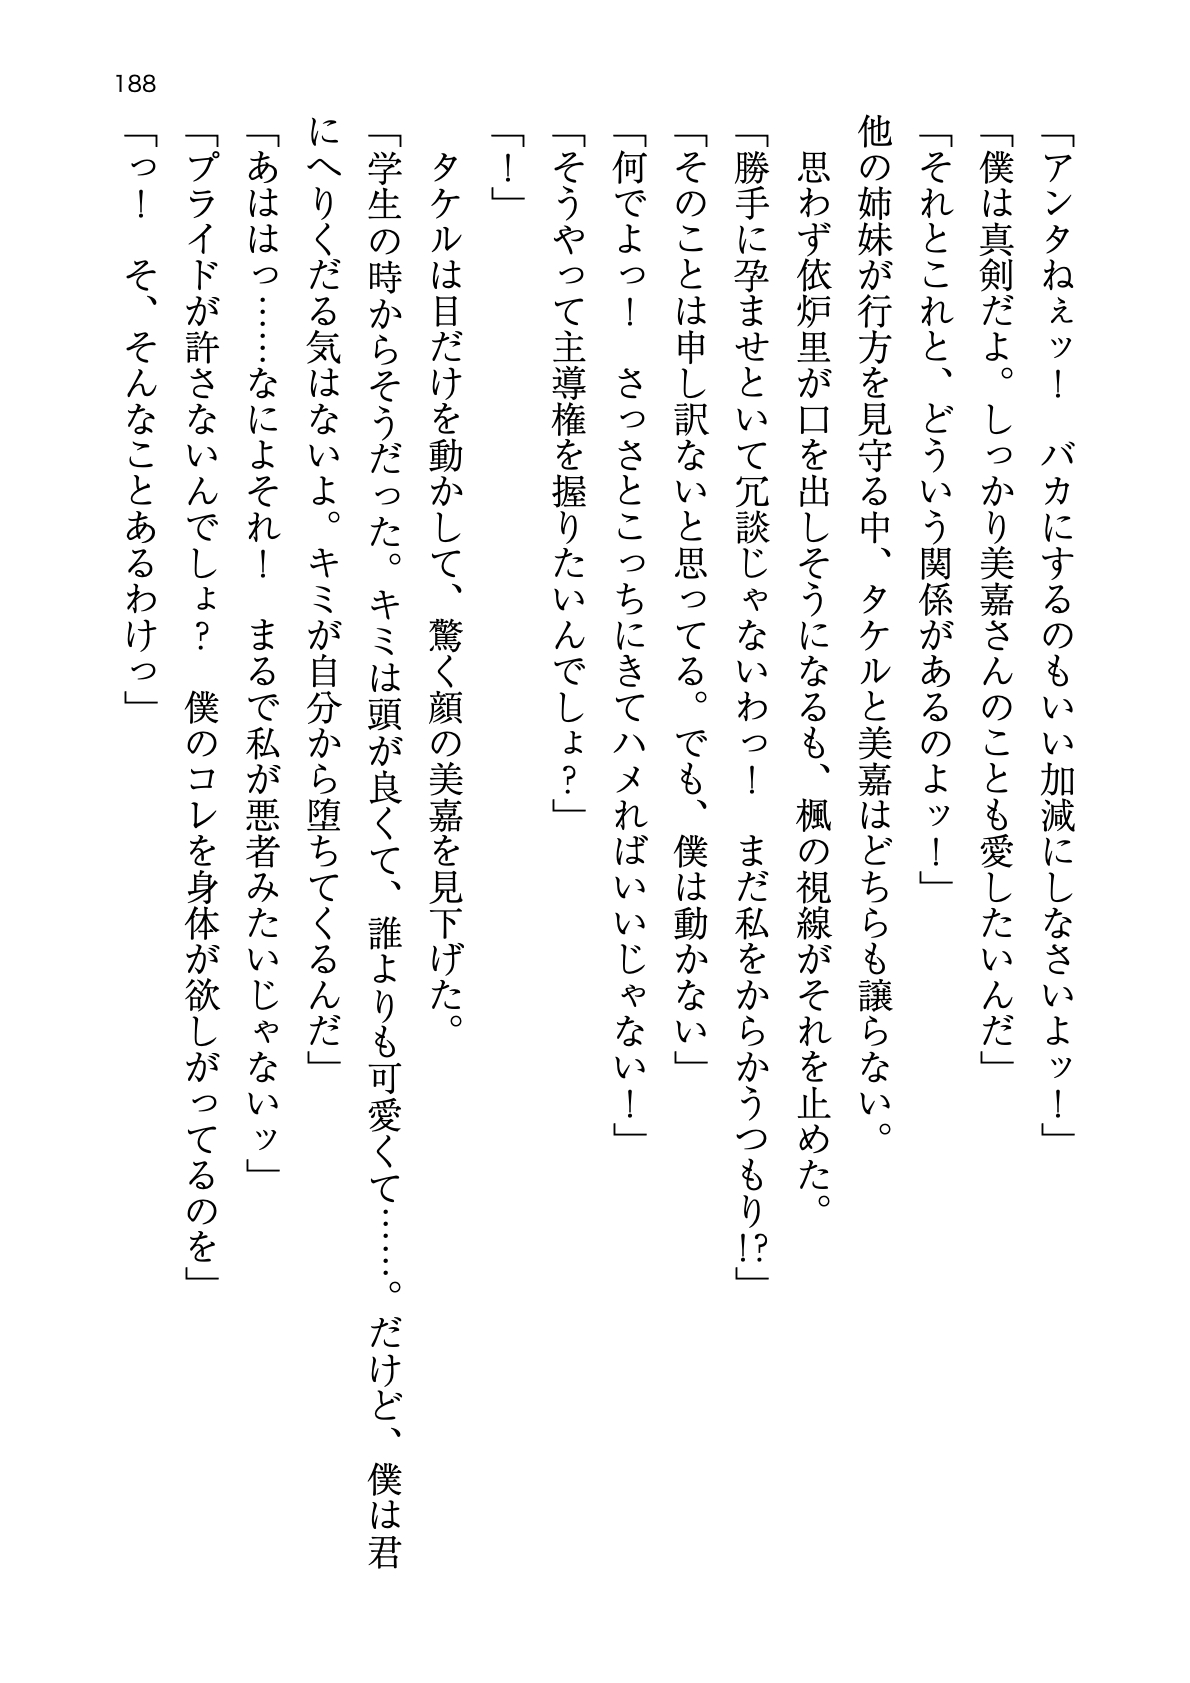 188
「アンタねぇッ！　バカにするのもいい加減にしなさいよッ！」
「僕は真剣だよ。しっかり美嘉さんのことも愛したいんだ」
「それとこれと、どういう関係があるのよッ！」
他の姉妹が行方を見守る中、タケルと美嘉はどちらも譲らない。
　思わず依炉里が口を出しそうになるも、楓の視線がそれを止めた。
「勝手に孕ませといて冗談じゃないわっ！　まだ私をからかうつもり!?」
「そのことは申し訳ないと思ってる。でも、僕は動かない」
「何でよっ！　さっさとこっちにきてハメればいいじゃない！」
「そうやって主導権を握りたいんでしょ？」
「！」
　タケルは目だけを動かして、驚く顔の美嘉を見下げた。
「学生の時からそうだった。キミは頭が良くて、誰よりも可愛くて……。だけど、僕は君
にへりくだる気はないよ。キミが自分から堕ちてくるんだ」
「あははっ……なによそれ！　まるで私が悪者みたいじゃないッ」
「プライドが許さないんでしょ？　僕のコレを身体が欲しがってるのを」
「っ！　そ、そんなことあるわけっ」